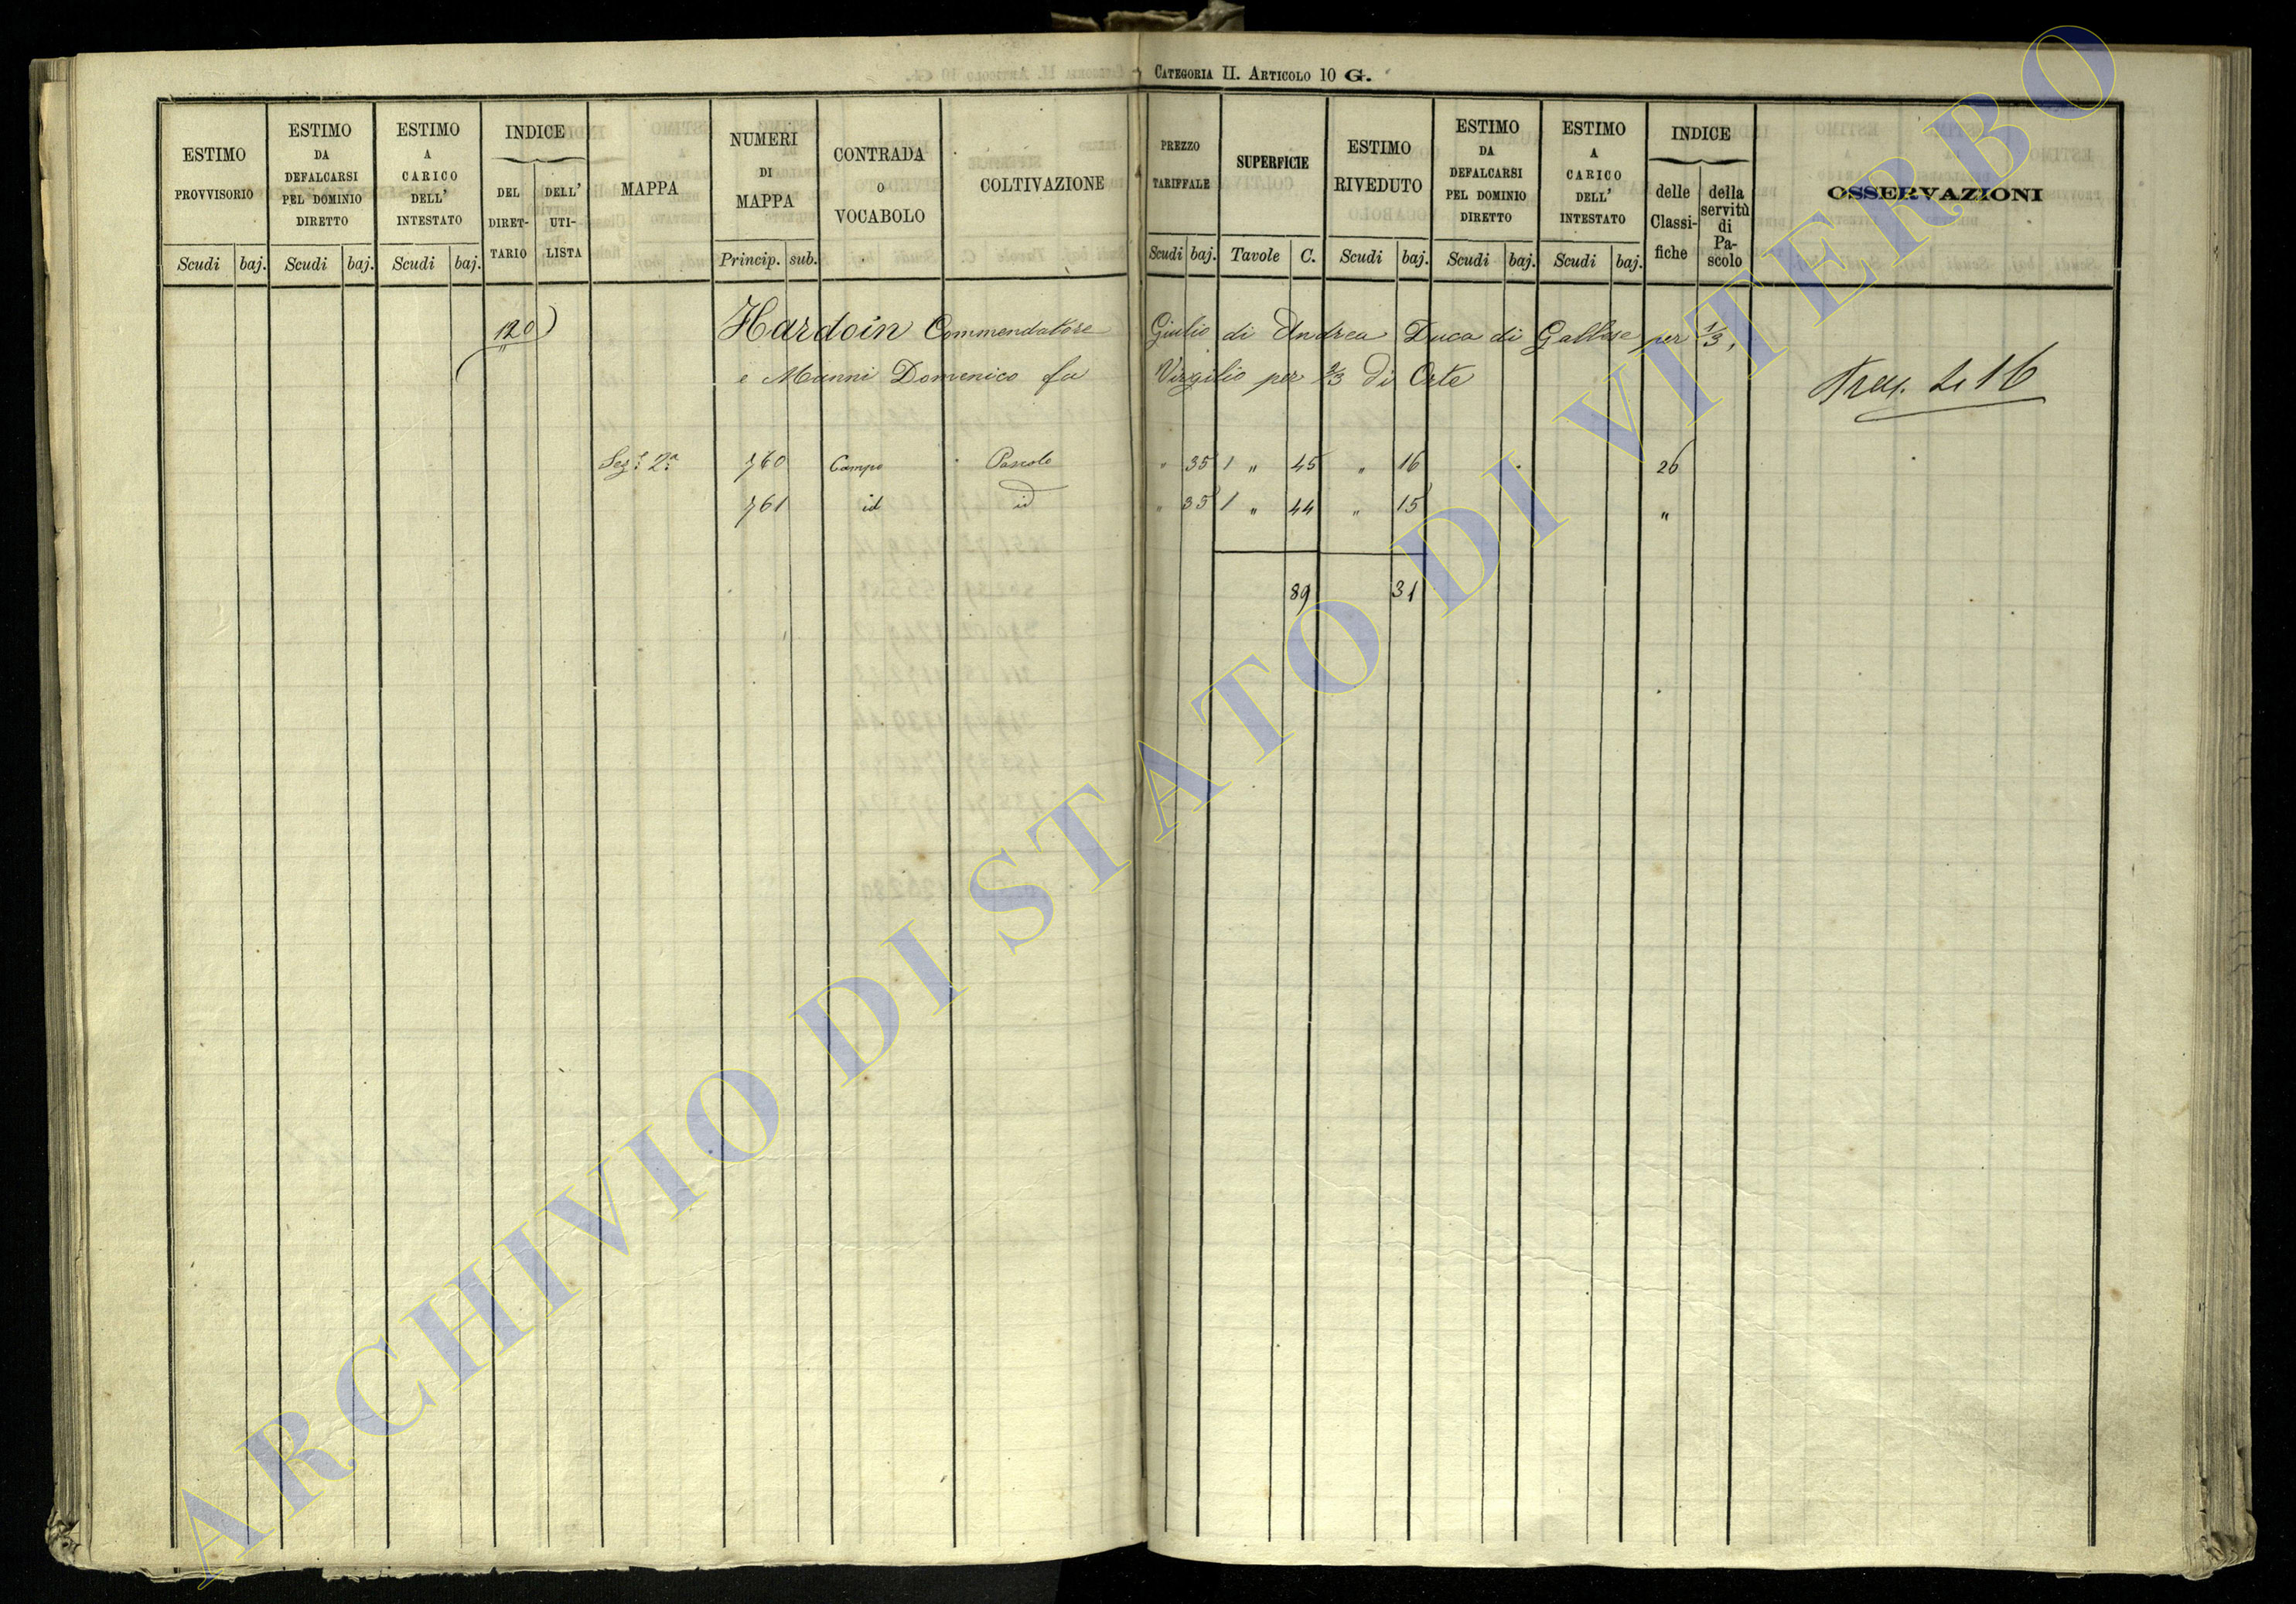 CATEGORIA II. ARTICOLO 10 G.
ESTIMO PROVVISORIO
Scudi baj.
ESTIMO DA DEFALCARSI PEL DOMINIO DIRETTO
Scudi baj.
ESTIMO A CARICO DELL' INTESTATO
Scudi baj.
INDICE
DEL DIRET-TARIO
DELL' UTI-LISTA
MAPPA
NUMERI DI MAPPA
Princip. sub.
CONTRADA O VOCABOLO
COLTIVAZIONE
PREZZO TARIFFALE
Scudi baj.
SUPERFICIE
Tavole C.
ESTIMO RIVEDUTO
Scudi baj.
ESTIMO DA DEFALCARSI PEL DOMINIO DIRETTO
Scudi baj.
ESTIMO A CARICO DELL' INTESTATO
Scudi baj.
INDICE
delle Classi-fiche
della servitù di Pa-scolo
OSSERVAZIONI
120) Hardoin Commendatore Giulio di Andrea Duca di Gallese per 1/3,
e Manni Domenico fu Virgilio per 2/3 di Orte
416
Sez. 2ª 760 Campo Pascolo " 35 1 " 45 " 16 26
761 id id " 35 1 " 44 " 15 "
89 31
ARCHIVIO DI STATO DI VITERBO